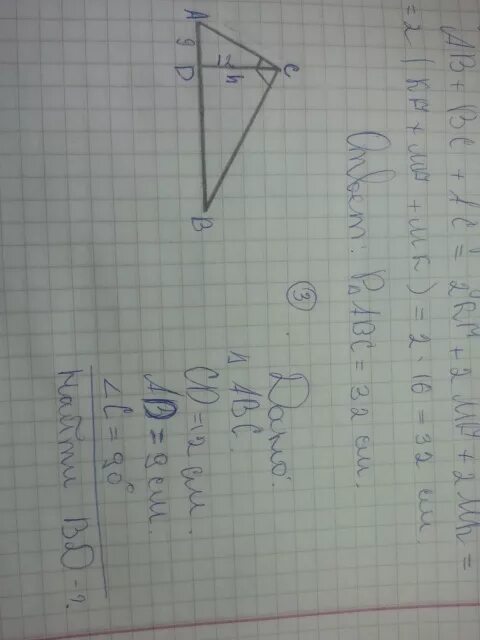 AB + BC + AC = 2KM + 2MP + 2MK =
= 2 (KP + MP + MK) = 2 · 16 = 32 см.
Ответ: P△ABC = 32 см.
③
Дано:
△ ABC.
CD = 12 см.
AD = 9 см.
∠C = 90°
Найти BD - ?
A
9
D
12
h
C
B